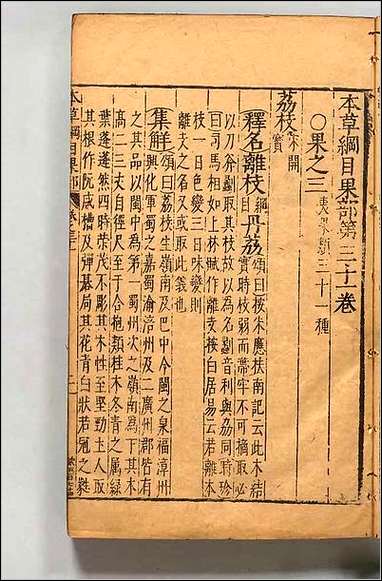 本草綱目果部第三十一卷
〇果之三 夷果類三十一種
荔枝 宋開寶
釋名離枝綱目丹荔頌曰按朱應扶南記云此木結
實時枝弱而蒂牢不可摘取必
以刀斧劙取其枝故以為名劙音利與荔同時珍
曰司馬相如上林賦作離支按白居易云若離本
枝一日色變三日味變則
離支之名又或取此義也
集解頌曰荔枝生嶺南及巴中今閩之泉福漳州
興化軍蜀之嘉蜀渝涪州及二廣州郡皆有
之其品以閩中為第一蜀州次之嶺南為下其木
高二三丈自徑尺至于合抱類桂木冬青之屬綠
葉蓬蓬然四時榮茂不彫其木性至堅勁土人取
其根作阮咸槽及彈碁局其花青白狀若冠之蕤
本草綱目果部 卷之三十一